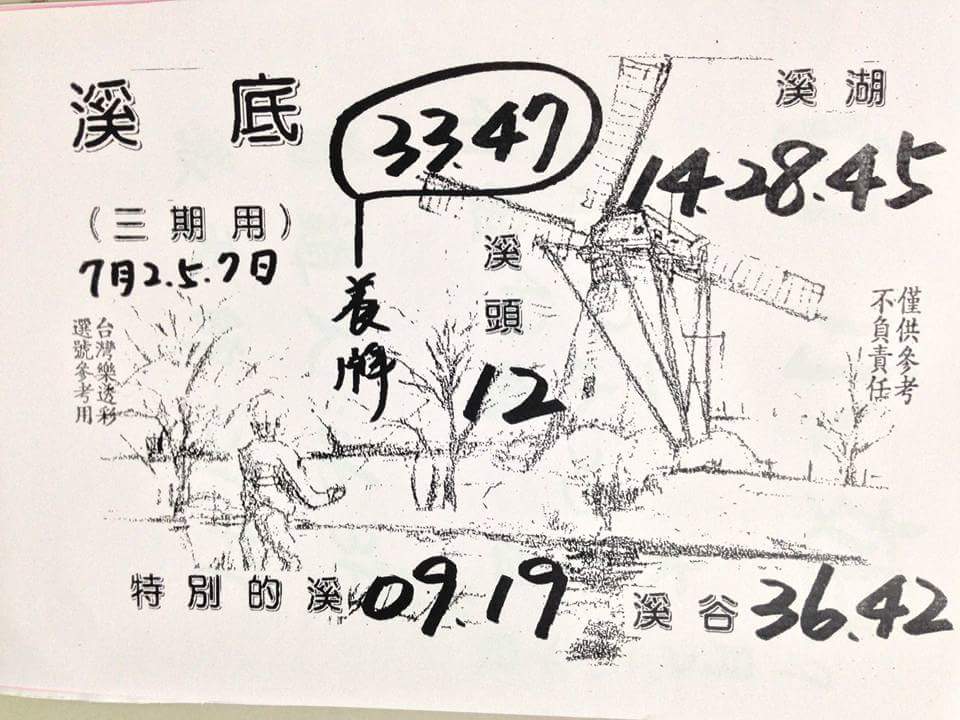 溪底
33.47
溪湖
14.28.45
(三期用)
7月2.5.7日
養牌
溪頭
12
僅供參考
不負責任
台灣樂透彩
選號參考用
特別的溪 09.19
溪谷 36.42